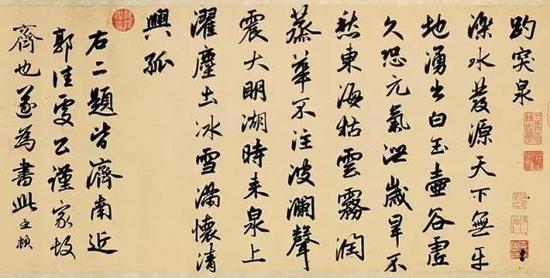 趵突泉
濼水發源天下無平
地湧出白玉壺谷虛
久恐元氣洩歲旱不
愁東海枯雲霧潤
蒸華不注波瀾聲
震大明湖時来泉上
濯塵土冰雪滿懷清
興孤
右二題皆濟南近
郭佳處公謹家故
齊也遂為書此孟頫